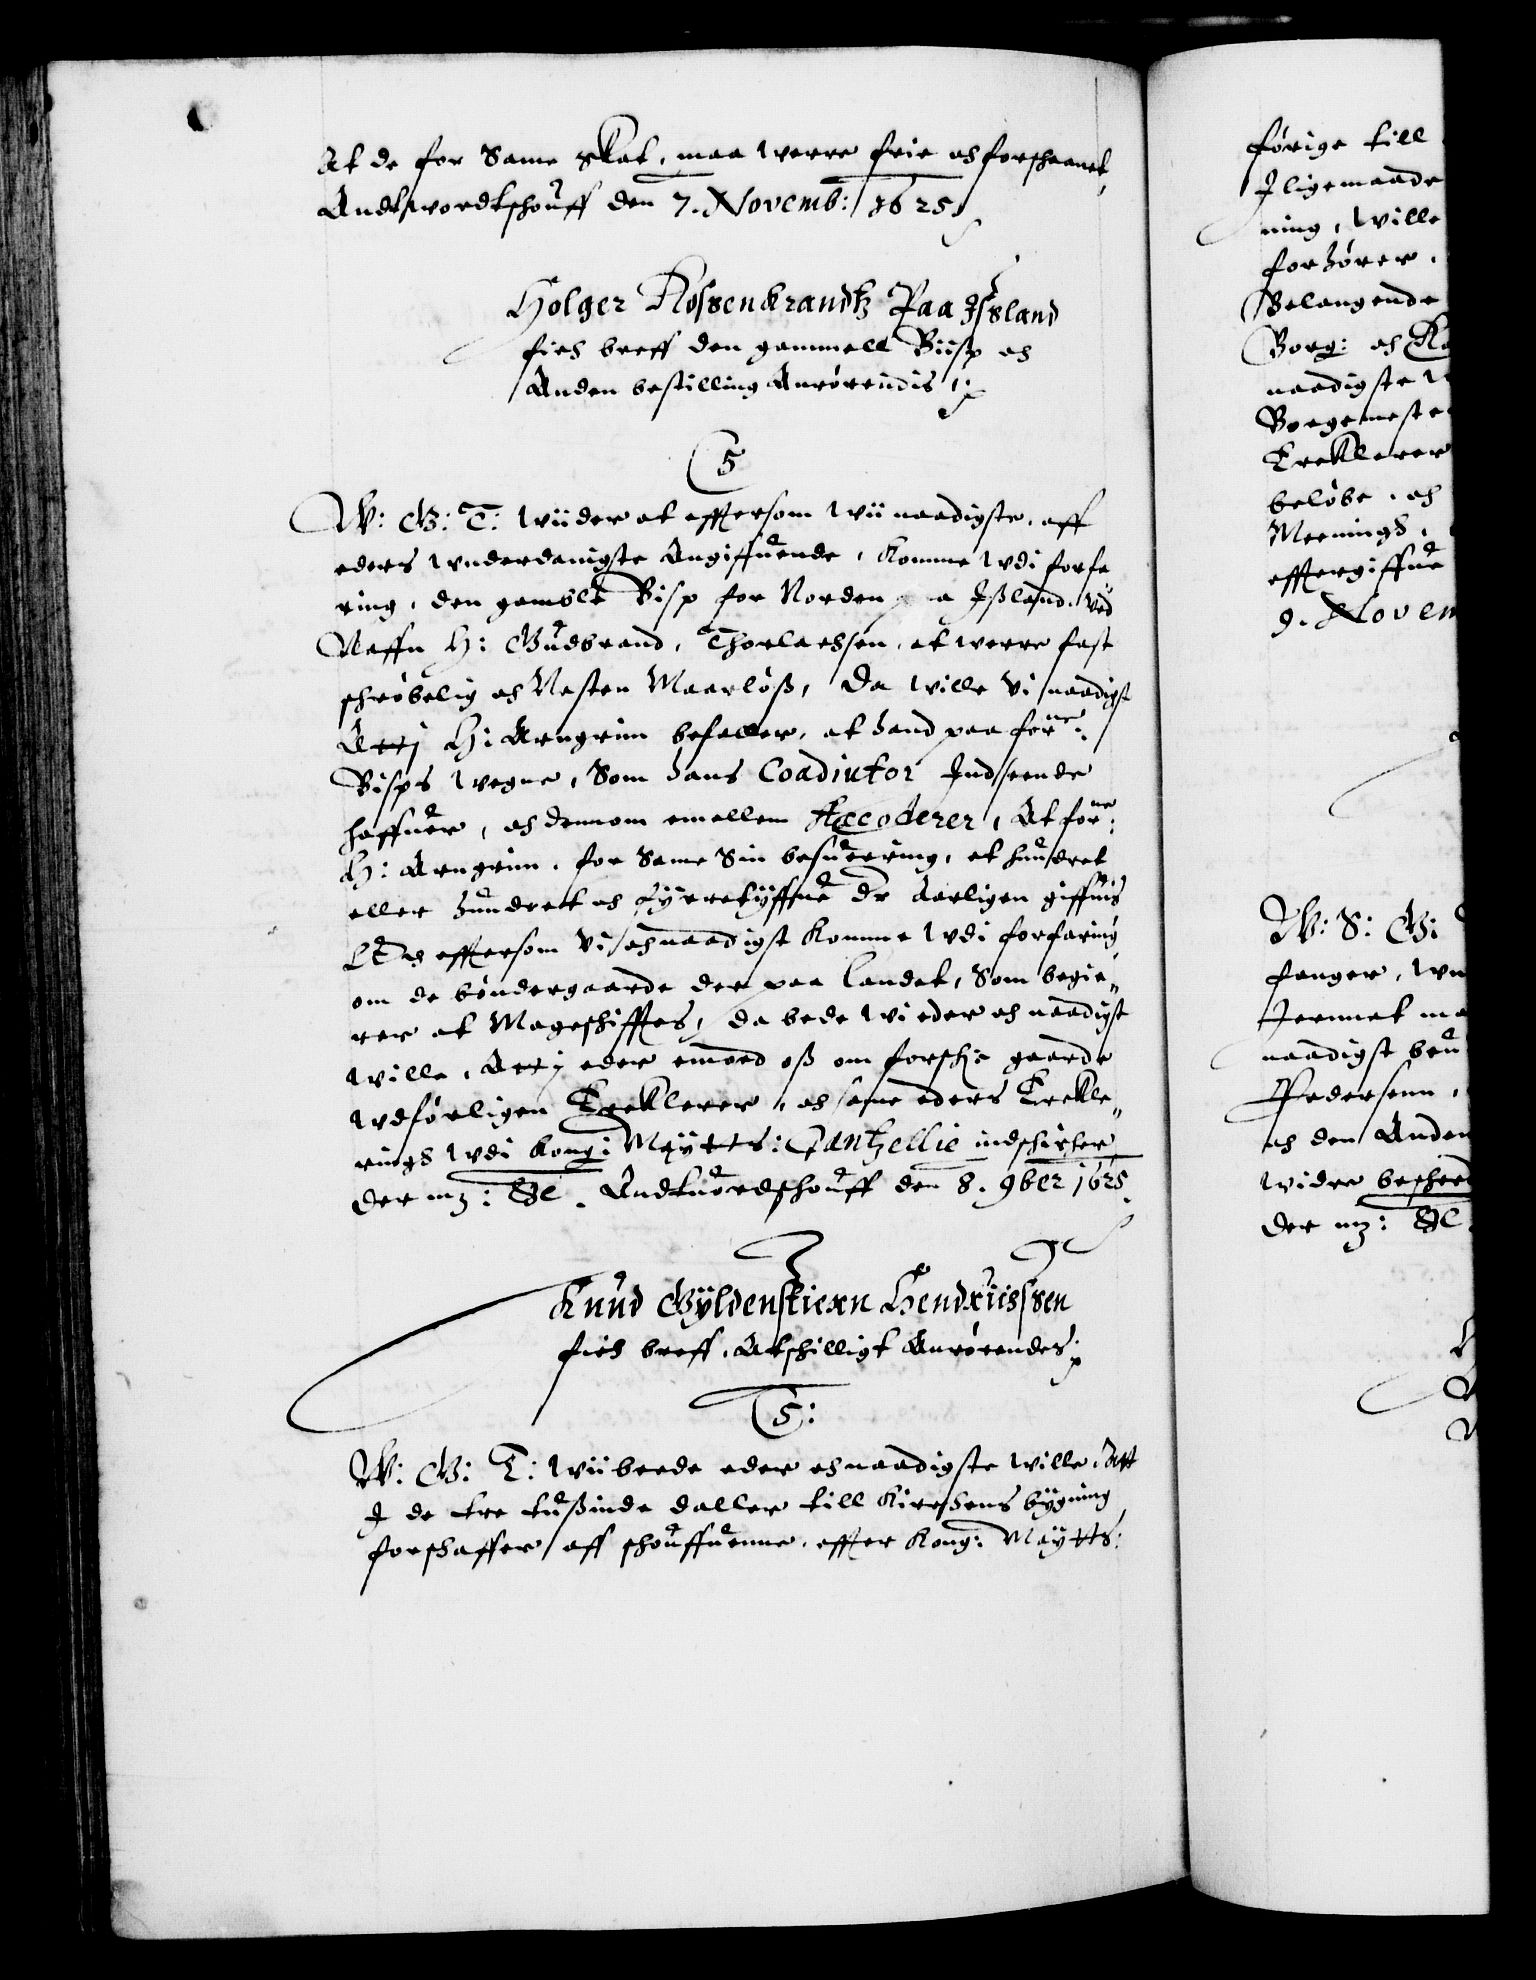 At de for Same Skat, maa were frie och forschaanet,
Andtswordtschouff den 7. Novemb: 1625
Holger Rossenkrandtz Paa Issland
fich breff den gammell Biisp och
Anden bestilling Anrörendis
5
W: G: T: Wiider at effttersom Wii naadigste, aff
eders Wnderdanigste Angiffuende, Komme Wdi forfa
ring, den gamble Bisp for Norden paa Jßland, Ved
Naffn H: Gudbrand, Thorlachssen, at werre fast
schröbelig och Nesten Maarlöß, Da wille Vi naadigst
Att j H: Arngrim befaller, at hand paa forne:
Bisps Wegne, Som hans Coadiutor Jndseende
haffuer, och dennom emellem Accoderer, At forne:
H: Arngrim, for Same Sin besueering, et hundret
eller hundret och fyrretyffue dr Aarligen giffuis
Och efftersom Vi och naadigst Komme Wdi forfaring
om de böndergaarde der paa Landet, Som begie,,
rer at Mageschifftes, da bede Wi eder och naadigst
wille, Att j eder emoed oß om forsch: gaarde
Wdförligen Ercklerer, och same eders Erckle,,
rings Wdi Kong: Maytts: Cantzellie indschicker
der mz: &c. Andtuordschouff den 8. 9ber 1625.
Knud Gyldenstiern Hendriissen
fich breff, Atschilligt Anrörendes
5:
W: G: T: Wii beede eder och naadigste wille, Att
J de tre tußinde daller till Kirchens bygning
forschaffer aff schouffuenne, effter Kong: Maytts:
förige till
Jligemaade
ning, Wille
forhörer,
Belangende
Borg: och
naadigste
Borgemeste
Ercklerer
belöbe, och
Meenings,
efftergiffue
9. Novem
W: S: G:
fanger, Wn
Jemmet ma
naadigst beu
Pedersenn,
och den Anden
widre bescheed
der mz: &c.